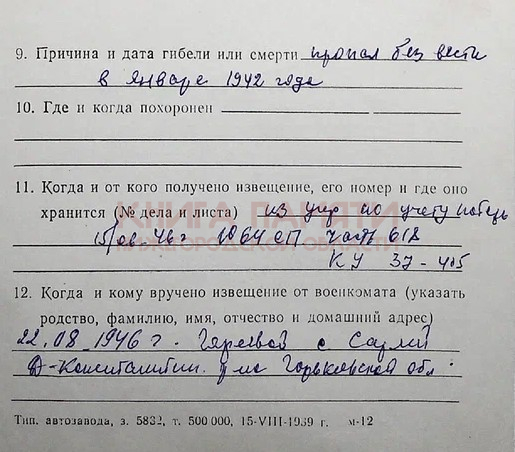 9. Причина и дата гибели или смерти пропал без вести
в январе 1942 года
10. Где и когда похоронен
11. Когда и от кого получено извещение, его номер и где оно
хранится (№ дела и листа) из упр по учету потерь
КНИГА ПАМЯТИ
НИЖЕГОРОДСКОЙ ОБЛАСТИ
46 г 1064 часть 618
КУ 37-405
12. Когда и кому вручено извещение от военкомата (указать
родство, фамилию, имя, отчество и домашний адрес)
22.08.1946 г. с
Горьковской обл
Тип. автозавода, з. 5832, т. 500 000, 15-VIII-1959 г. м-12